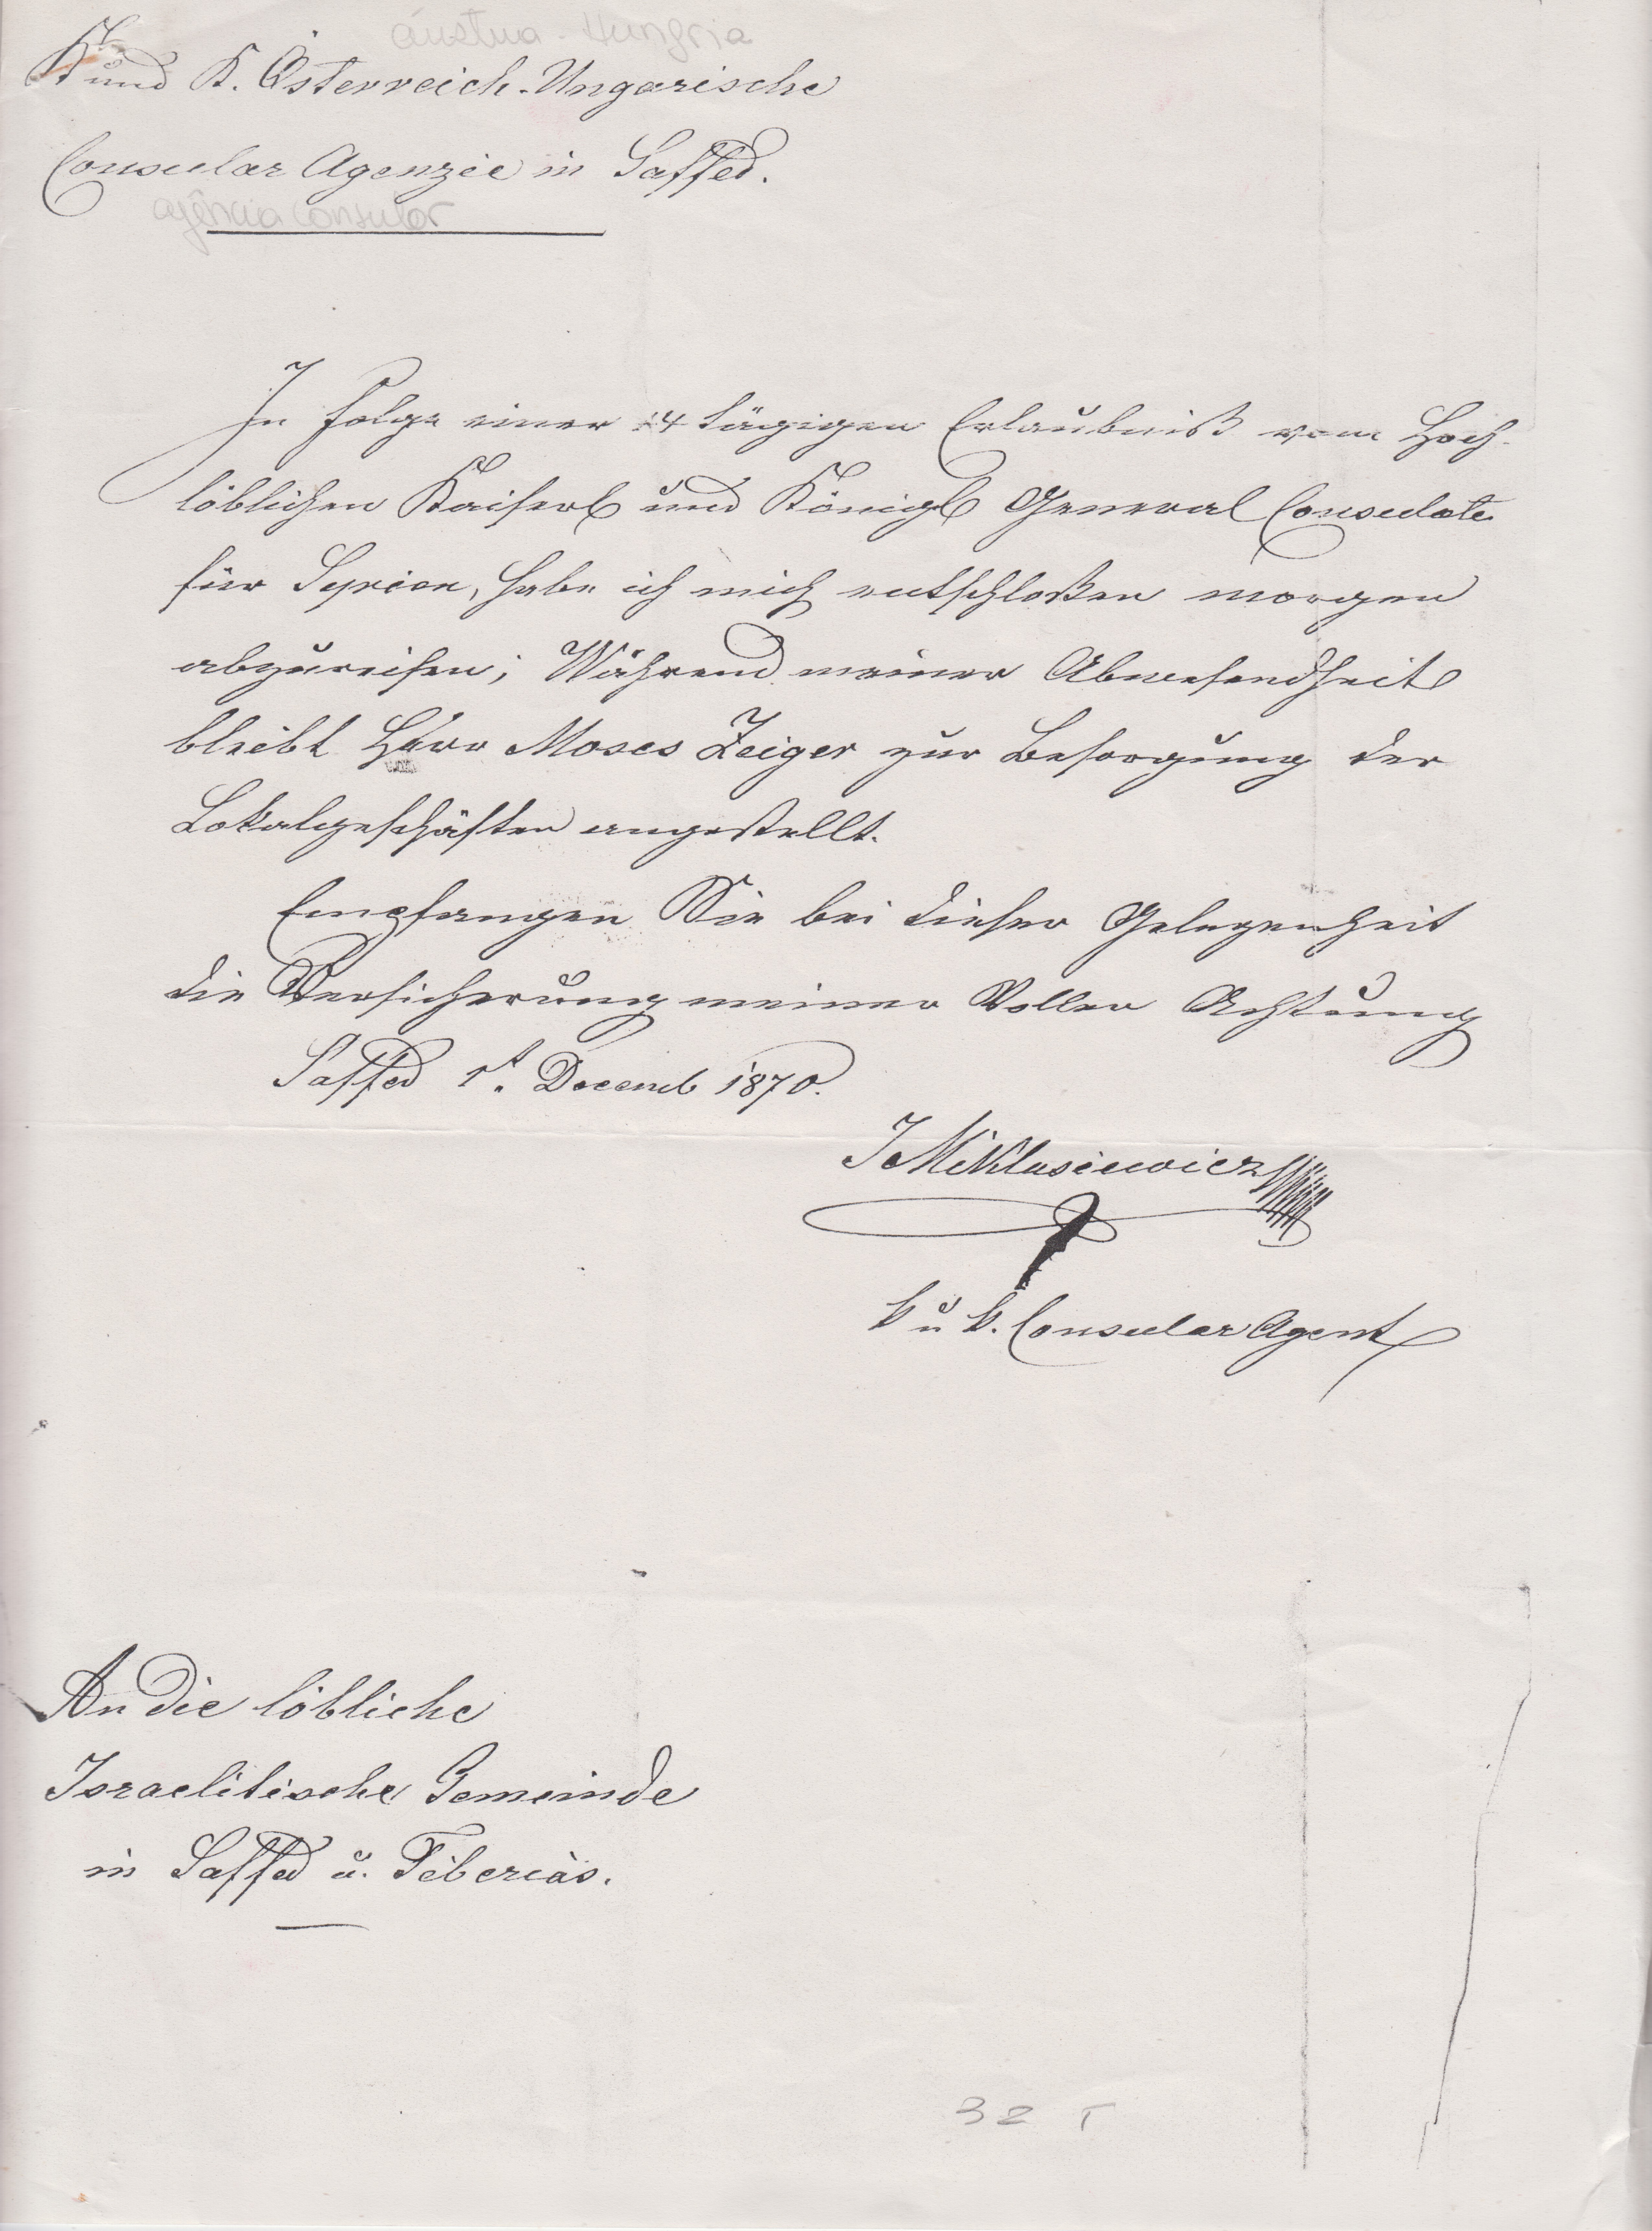 áustria-Hungria
K. und K. Österreich-Ungarische
Consular Agenzie in Saffed.
agência consular
In Folge einer 14 tägigen Erlaubniß vom Hoch-
löblichen Kaiserl und Königl General Consulate
für Syrien, habe ich mich entschloßen morgen
abzureisen; Während meiner Abwesendheit
bleibt Herr Moses Zeiger zur Besorgung der
Lokalgeschäften angestellt.
Empfangen Sie bei dieser Gelegenheit
die Versicherung meiner Vollen Achtung
Saffed 1t. Decemb 1870.
J Miklasiewicz
k u k. Consular Agent
An die löbliche
Israelitische Gemeinde
in Saffed u. Tiberias.
32 T